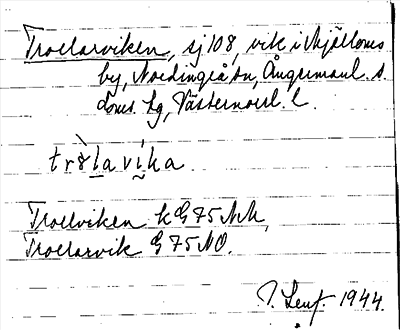 Trollarviken, sj 108, vik i Mjälloms
by, Nordingrå sn, Ångermanl. s.
doms. lg, Västernorrl. l.
tròlavíka
Trollviken k G 75 NÖ,
Trollarvik G 75 NO.
1944.